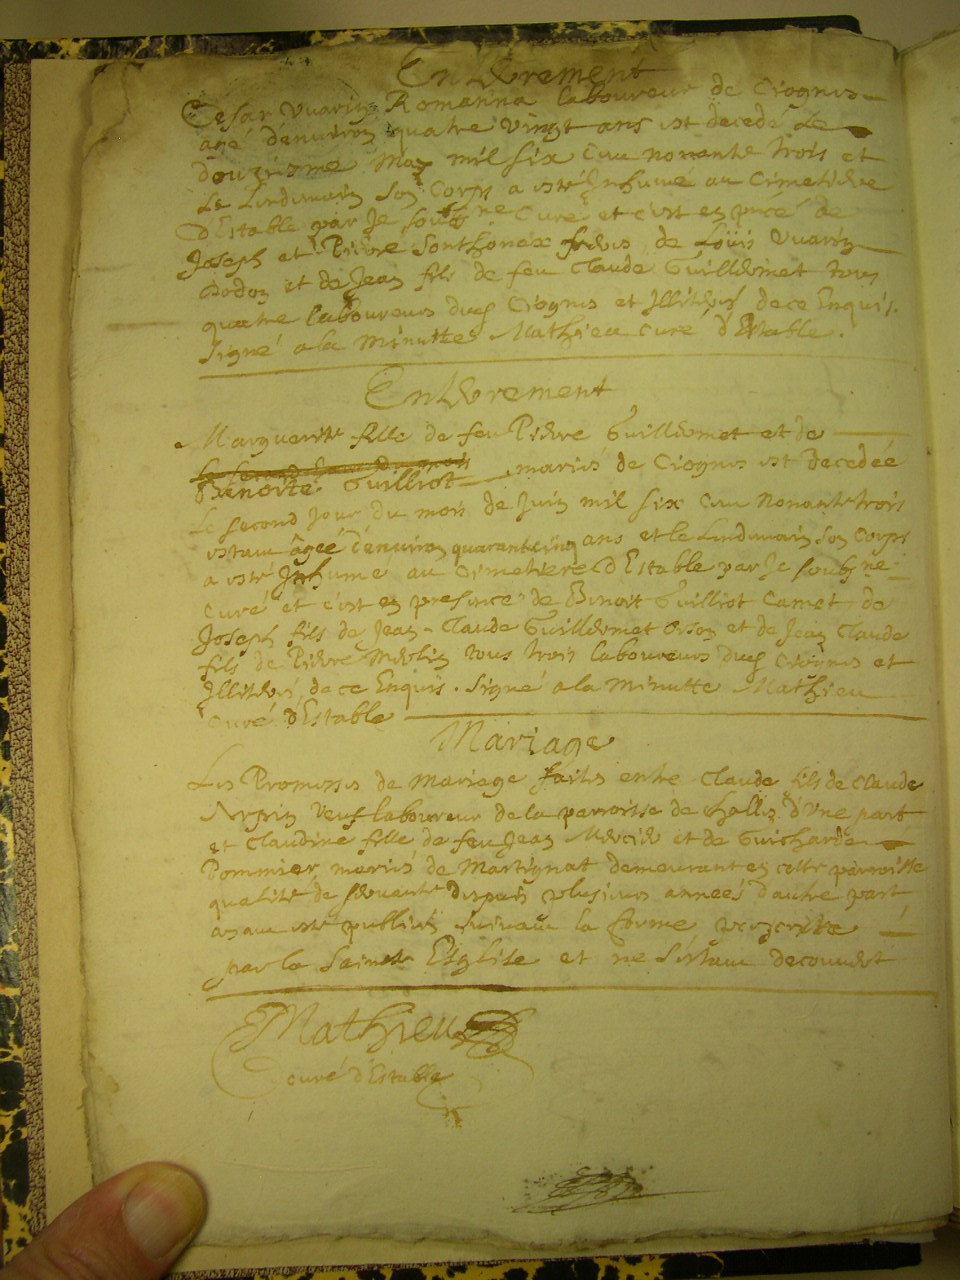 Enterrement
Cesar Vuarin Romanna laboureur de Ciognis
agé denuiron quatre Vingt ans est decedé Le
douziesme May mil six Cens nonante trois et
Le Lendemain son Corps a esté Inhumé au Cimetiere
d'Estable par Je soubs ne Curé et c'est en pnce de
Joseph et Pierre Sonthonax freres, de Loüis Vuarin
dodon et de Jean fils de feu Claude Guillermet tous
quatre laboureurs dud Ciognis et Illiteres dece Enquis.
Signé a la Minutte Mathieu Curé d'Estable.
Enterrement
Marguerite fille de feu Pierre Guillermet et de
Benoite Guilliot mariés de Ciognis est decedée
Le second Jour du mois de Juin mil six Cens Nonante trois
estant âgeé d'enuiron quarantecinq ans et le Lendemain son Corps
a esté Inhumé au Cimetiere d'Estable par Je soubs ne
Curé et c'est en presence de Benoit Guilliot Camet de
Joseph fils de Jean-Claude Guillermet Orson et de Jean Claude
fils de Pierre Merlin tous trois laboureurs dud Ciognis et
Illiterés de ce Enquis. Signé a la Minutte Mathieu
Curé d'Estable
Mariage
Les Promesses de Mariage faites entre Claude fils de Claude
Veuf laboureur de la parroisse de Challes d'Une part
et Claudine fille de feu Jean Mercier et de Guicharde
Pommier mariés de Martignat demeurant en cette parroisse
qualité de seruante depuis plusieurs années d'autre part
ayant esté publiées suivant la forme prescritte
par la Sainte Eglise et ne s'estant decouuert
Mathieu
curé d'Estable